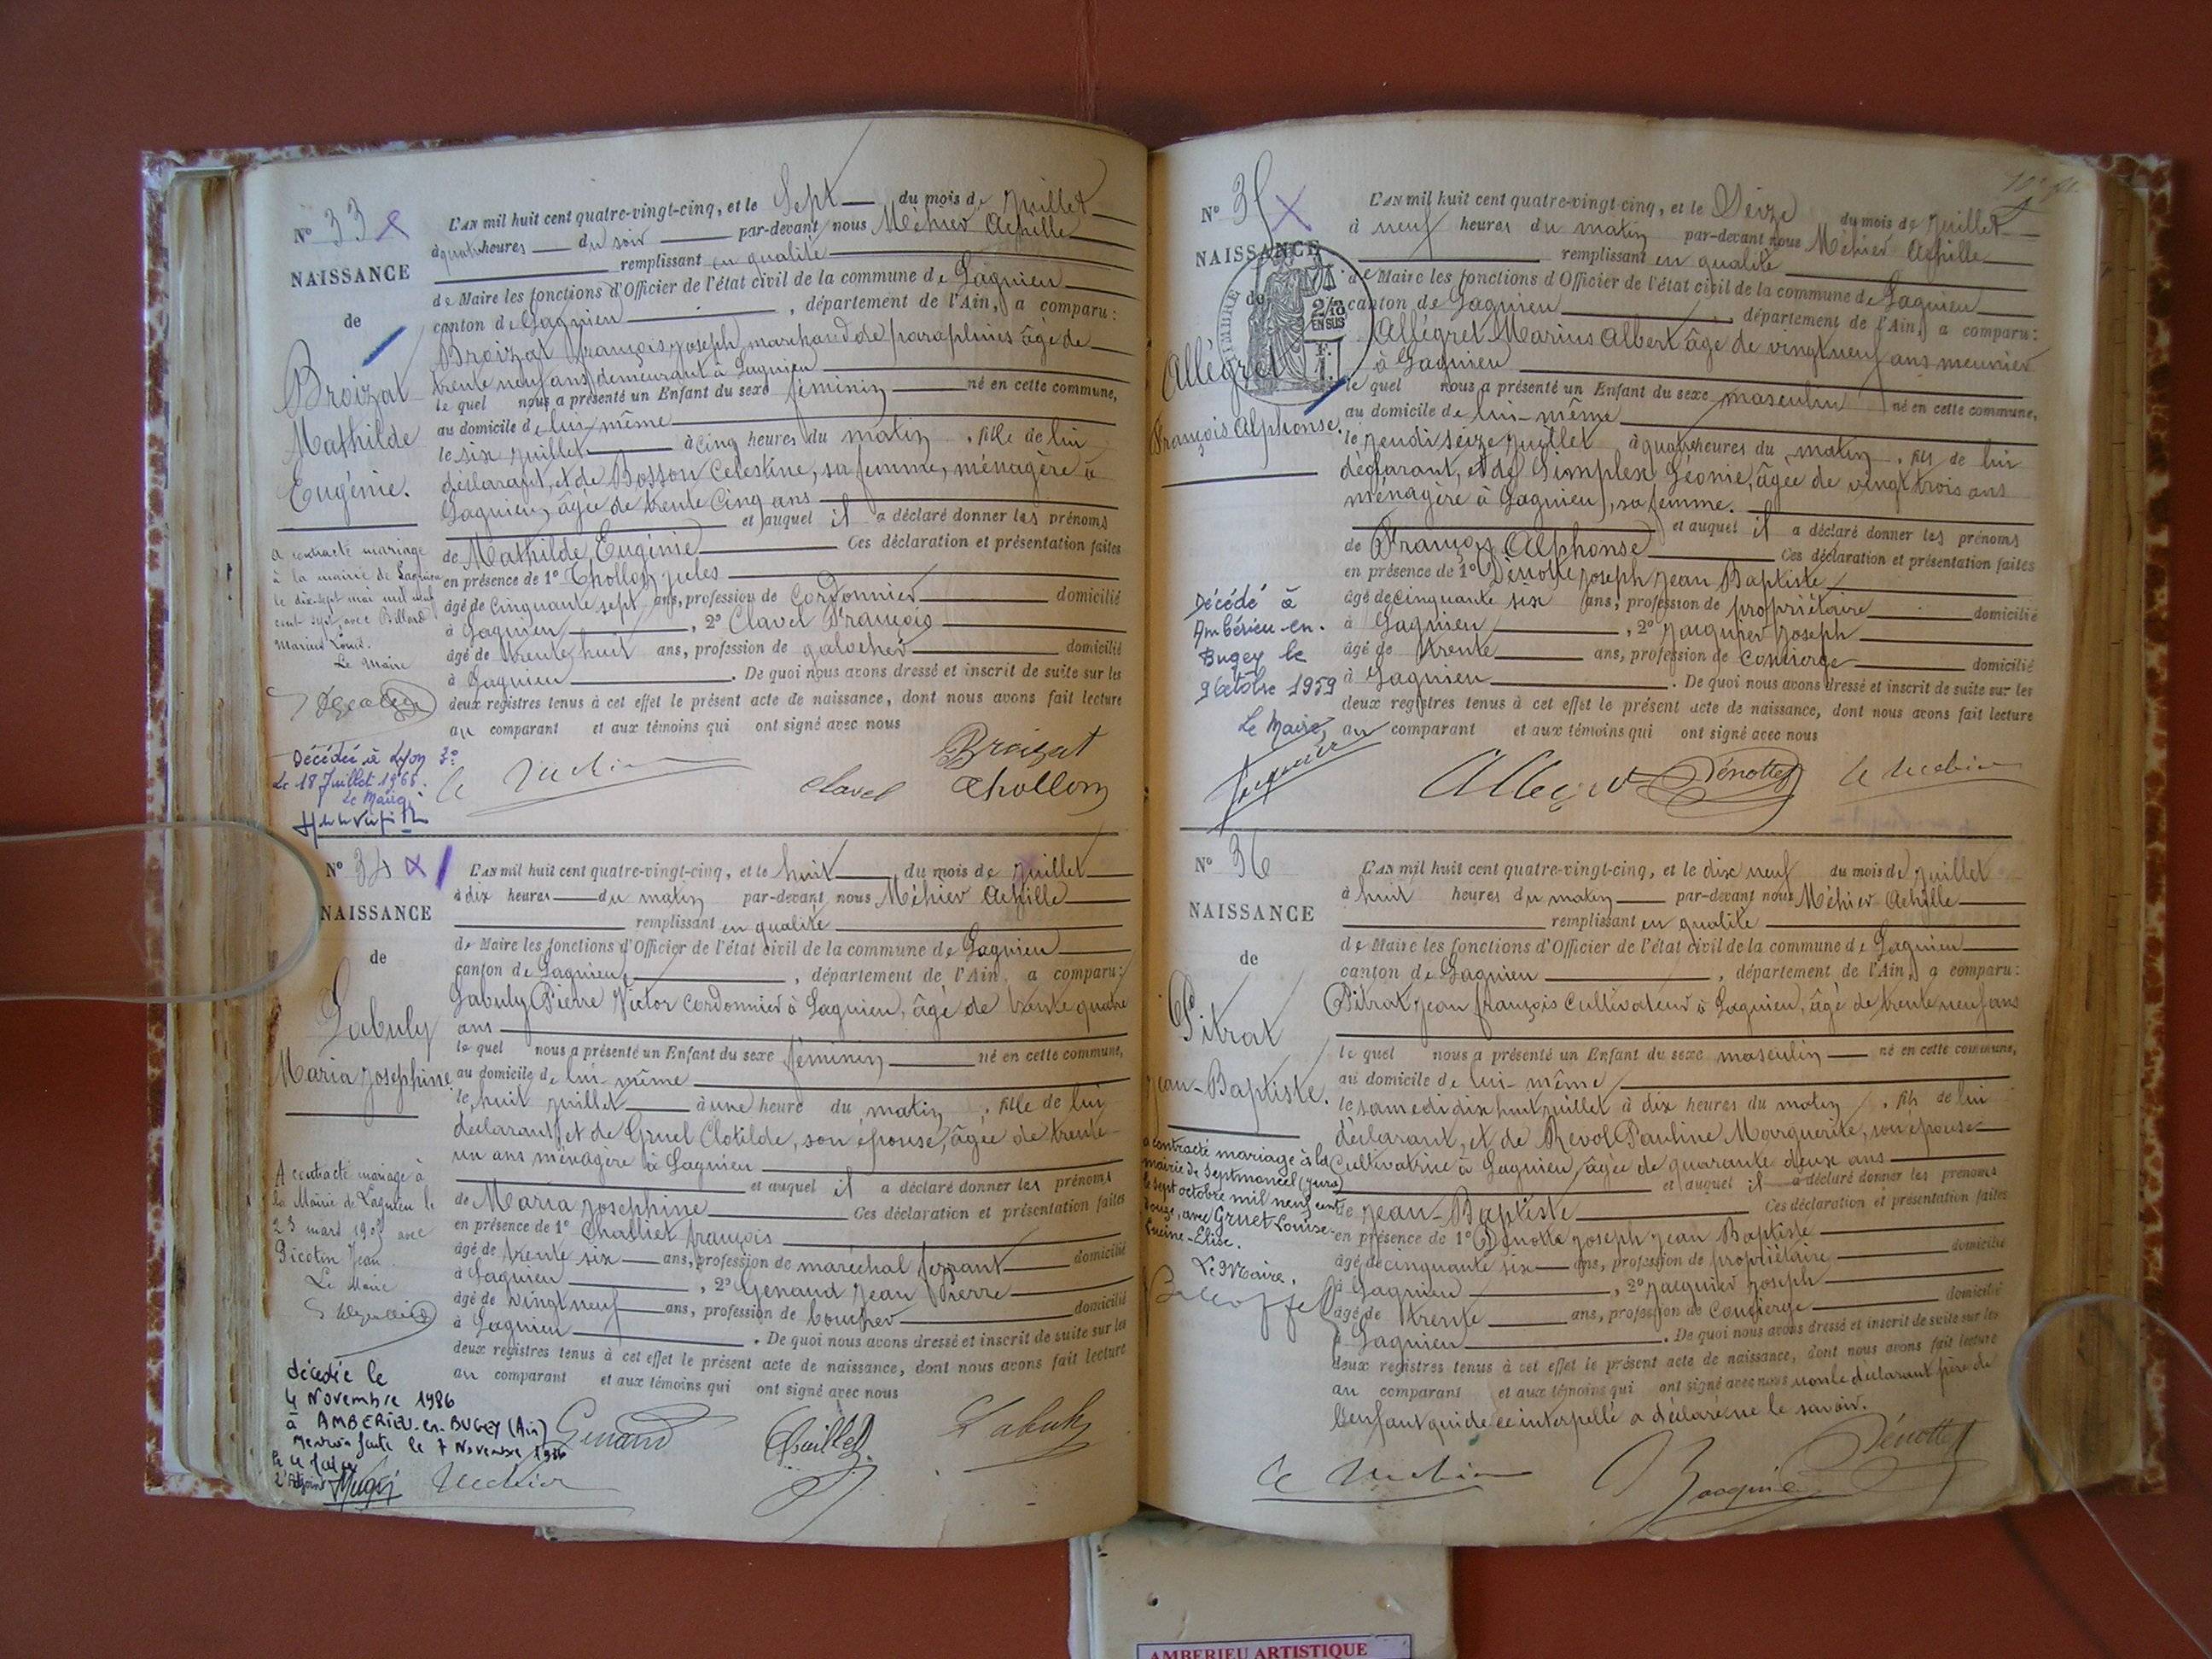 N° 33
NAISSANCE
de
Broizat
Mathilde
Eugénie.
a contracté mariage
à la mairie de Lagnieu
le dix-sept mai mil neuf
cent sept, avec Billard
Marius Louis.
Le Maire
Décédée à Lyon 3e
Le 18 Juillet 1966.
Le Maire
L'AN mil huit cent quatre-vingt-cinq, et le Sept du mois de Juillet
à quatre heures du soir par-devant nous Méhier Achille
remplissant en qualité
de Maire les fonctions d'Officier de l'état civil de la commune de Lagnieu
canton de Lagnieu , département de l'Ain, a comparu:
Broizat François Joseph, marchand de parapluies âgé de
trente neuf ans demeurant à Lagnieu
le quel nous a présenté un Enfant du sexe féminin né en cette commune,
au domicile de lui-même
le six juillet à cinq heures du matin , fille de lui
déclarant, et de Bosson Celestine, sa femme, ménagère à
Lagnieu, âgée de trente cinq ans
et auquel il a déclaré donner les prénoms
de Mathilde Eugénie Ces déclaration et présentation faites
en présence de 1° Chollon Jules
âgé de cinquante sept ans, profession de Cordonnier domicilié
à Lagnieu , 2° Clavel François
âgé de trente huit ans, profession de galocher domicilié
à Lagnieu . De quoi nous avons dressé et inscrit de suite sur les
deux registres tenus à cet effet le présent acte de naissance, dont nous avons fait lecture
au comparant et aux témoins qui ont signé avec nous
Broizat
Clavel Chollon
N° 34
NAISSANCE
de
Labuly
Maria Josephine
A contracté mariage à
la Mairie de Lagnieu le
23 mars avec
Picotin Jean
Le Maire
décédée le
4 Novembre 1986
à AMBERIEU-en-BUGEY (Ain)
Mention faite le 7 Novembre 1986
L'Adjoint
L'AN mil huit cent quatre-vingt-cinq, et le huit du mois de Juillet
à dix heures du matin par-devant nous Méhier Achille
remplissant en qualité
de Maire les fonctions d'Officier de l'état civil de la commune de Lagnieu
canton de Lagnieu , département de l'Ain, a comparu:
Labuly Pierre Victor Cordonnier à Lagnieu, âgé de trente quatre
ans
le quel nous a présenté un Enfant du sexe féminin né en cette commune,
au domicile de lui-même
le huit juillet à une heure du matin , fille de lui
déclarant et de Gruel Clotilde, son épouse, âgée de trente
un ans ménagère à Lagnieu
et auquel il a déclaré donner les prénoms
de Maria Josephine Ces déclaration et présentation faites
en présence de 1° Challiet François
âgé de trente six ans, profession de maréchal ferrant domicilié
à Lagnieu , 2° Genaud Jean Pierre
âgé de vingt neuf ans, profession de boucher domicilié
à Lagnieu . De quoi nous avons dressé et inscrit de suite sur les
deux registres tenus à cet effet le présent acte de naissance, dont nous avons fait lecture
au comparant et aux témoins qui ont signé avec nous
Genaud Labuly
N° 35
NAISSANCE
de
TIMBRE
2/10
EN SUS
Allégret
François Alphonse.
Décédé à
Ambérieu-en-
Bugey le
9 Octobre 1959
Le Maire,
L'AN mil huit cent quatre-vingt-cinq, et le Seize du mois de Juillet
à neuf heures du matin par-devant nous Méhier Achille
remplissant en qualité
de Maire les fonctions d'Officier de l'état civil de la commune de Lagnieu
canton de Lagnieu , département de l'Ain, a comparu:
Allégret Marius Albert âgé de vingt neuf ans meunier
à Lagnieu
le quel nous a présenté un Enfant du sexe masculin né en cette commune,
au domicile de lui-même
le jeudi seize juillet à quatre heures du matin , fils de lui
déclarant, et de Simplex Léonie, âgée de vingt trois ans
ménagère à Lagnieu, sa femme.
et auquel il a déclaré donner les prénoms
de François Alphonse Ces déclaration et présentation faites
en présence de 1° Dénotte Joseph Jean Baptiste
âgé de cinquante six ans, profession de propriétaire domicilié
à Lagnieu , 2° Jacquier Joseph
âgé de trente ans, profession de Concierge domicilié
à Lagnieu . De quoi nous avons dressé et inscrit de suite sur les
deux registres tenus à cet effet le présent acte de naissance, dont nous avons fait lecture
au comparant et aux témoins qui ont signé avec nous
Allégret Dénotte
N° 36
NAISSANCE
de
Pitrat
Jean-Baptiste.
a contracté mariage à la
mairie de Septmoncel (Jura)
le sept octobre mil neuf cent
douze, avec Gruet Louise-
Lucine-Elise.
Le Maire.
L'AN mil huit cent quatre-vingt-cinq, et le dix neuf du mois de Juillet
à huit heures du matin par-devant nous Méhier Achille
remplissant en qualité
de Maire les fonctions d'Officier de l'état civil de la commune de Lagnieu
canton de Lagnieu , département de l'Ain, a comparu:
Pitrat Jean François Cultivateur à Lagnieu, âgé de trente neuf ans
le quel nous a présenté un Enfant du sexe masculin né en cette commune,
au domicile de lui-même
le samedi dix huit juillet à dix heures du matin , fils de lui
déclarant, et de Revol Pauline Marguerite, son épouse
Cultivatrice à Lagnieu, âgée de quarante deux ans
et auquel il a déclaré donner les prénoms
de Jean-Baptiste Ces déclaration et présentation faites
en présence de 1° Dénotte Joseph Jean Baptiste
âgé de cinquante six ans, profession de propriétaire domicilié
à Lagnieu , 2° Jacquier Joseph
âgé de trente ans, profession de Concierge domicilié
à Lagnieu . De quoi nous avons dressé et inscrit de suite sur les
deux registres tenus à cet effet le présent acte de naissance, dont nous avons fait lecture
au comparant et aux témoins qui ont signé avec nous non le déclarant père de
l'enfant qui de ce interpellé a déclaré ne le savoir.
Dénotte
Jacquier
AMBERIEU ARTISTIQUE